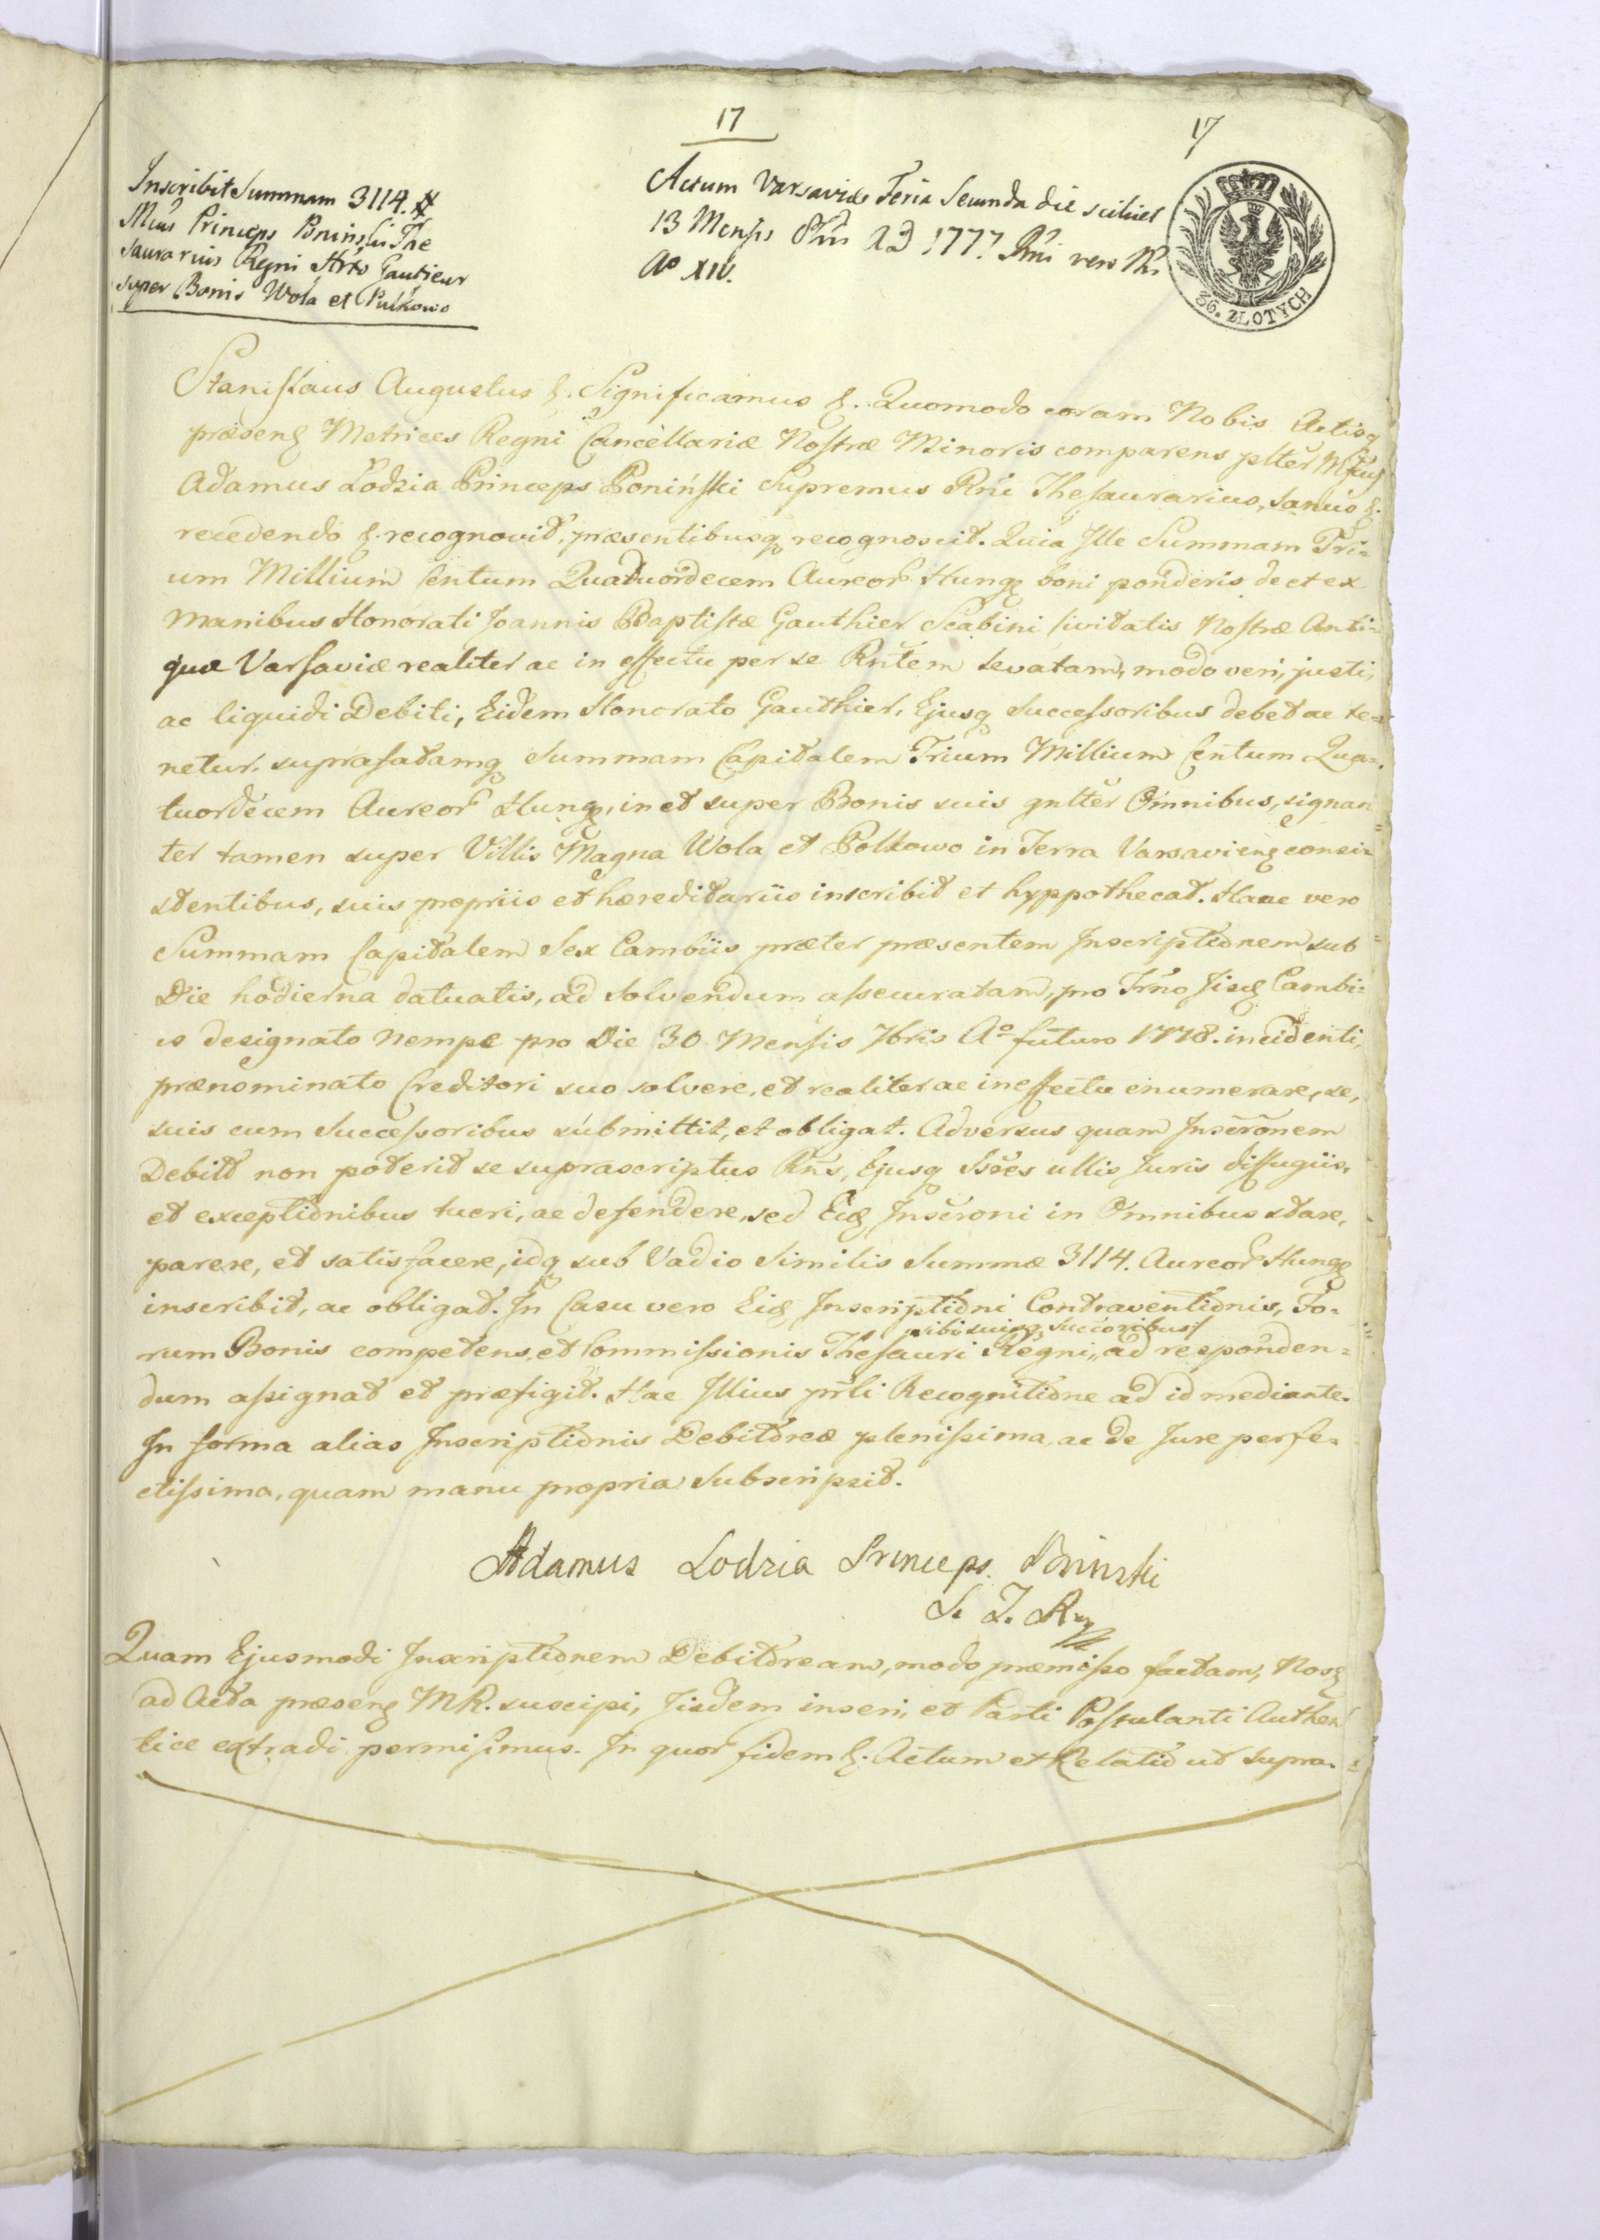 17
17
Inscribit Summam 3114. #
Princeps Poninski The
saurarius Regni Gautieur
super Bonis Wola et Pulkowo
Actum Varsaviæ Feria Secunda die scilicet
13 Mensis 8bris AD 1777. Rni vero Nri
Ao XIV.
36. ZŁOTYCH
Stanislaus Augustus &. Significamus &. Quomodo coram Nobis Actisq
præsens Metrices Regni Cancellariæ Nostræ Minoris comparens plter
Adamus Łodzia Princeps Poniński Supremus Rni Thesaurarius, sanus &.
recedendo &. recognovit, præsentibusq recognoscit. Quia Ille Summam Tri-
um Millium Centum Quatuordecem Aureor Hung boni ponderis de et ex
Manibus Honorati Joannis Baptistæ Gauthier Scabini Civitatis Nostræ Anti-
quæ Varsaviæ realiter ac in effectu per se Rntem levatam, modo veri, justi,
ac liquidi Debiti, Eidem Honorato Gauthier, Ejusq Successoribus debet ac te-
netur. suprafatamq Summam Capitalem Trium Millium Centum Qua-
tuordecem Aureor Hung, in et super Bonis suis gnlter Omnibus, signan
ter tamen super Villis Magna Wola et Polkowo in Terra Varsavieng consi-
stentibus, suis propriis et hæreditariis inscribit et hyppothecat. Hanc vero
Summam Capitalem Sex Cambiis præter præsentem Inscriptionem sub
Die hodierna datuatis, ad solvendum assecuratam, pro Trno Iisd Cambi-
is designato nempe pro Die 30 Mensis 7bris Ao futuro 1778. incidenti,
prænominato Creditori suo solvere, et realiter ac in effectu enumerare, se,
suis cum Successoribus submittit, et obligat. Adversus quam Inscronem
Debitt non poterit se suprascriptus Rns, Ejusq Ssces ullis Juris diffugiis,
et exceptionibus tueri, ac defendere, sed Eid Inscroni in Omnibus stare,
parere, et satisfacere, idq sub Vadio Similis Summæ 3114. Aureor Hung
inscribit, ac obligat. In Casu vero Eid Inscriptioni Contraventionis, Fo-
sibi suisq succoribus
rum Bonis competens, et Commissionis Thesauri Regni,, ad responden-
dum assignat et præfigit. Hac Illius prli Recognitione ad id mediante.
In forma alias Inscriptionis Debitoreæ plenissima, ac de Jure perfe-
ctissima, quam manu propria Subscripsit.
Adamus Lodzia Princeps Poninski
S. T. R
Quam Ejusmodi Inscriptionem Debitoream, modo præmisso factam, Nos
ad Acta præsens MR. suscipi, Iisdem inseri, et Parti Postulanti Authen
tice extradi permisimus. In quor fidem &. Actum et Relatio ut supra.